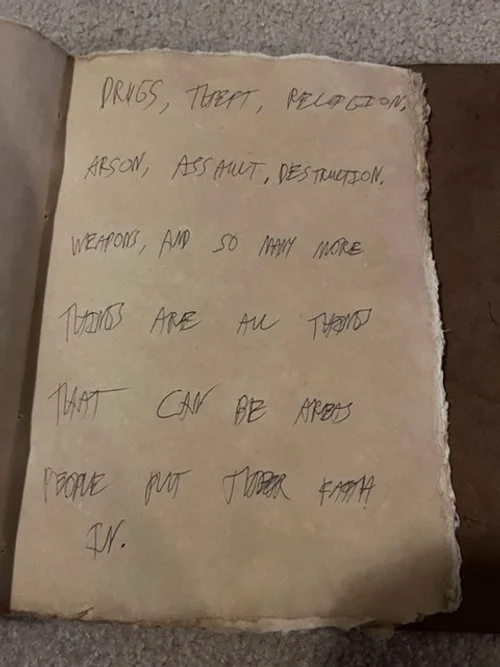 DRUGS, THEFT, RELIGION,
ARSON, ASSAULT, DESTRUCTION,
WEAPONS, AND SO MANY MORE
THINGS ARE ALL THINGS
THAT CAN BE AREAS
PEOPLE PUT THEIR FAITH
IN.